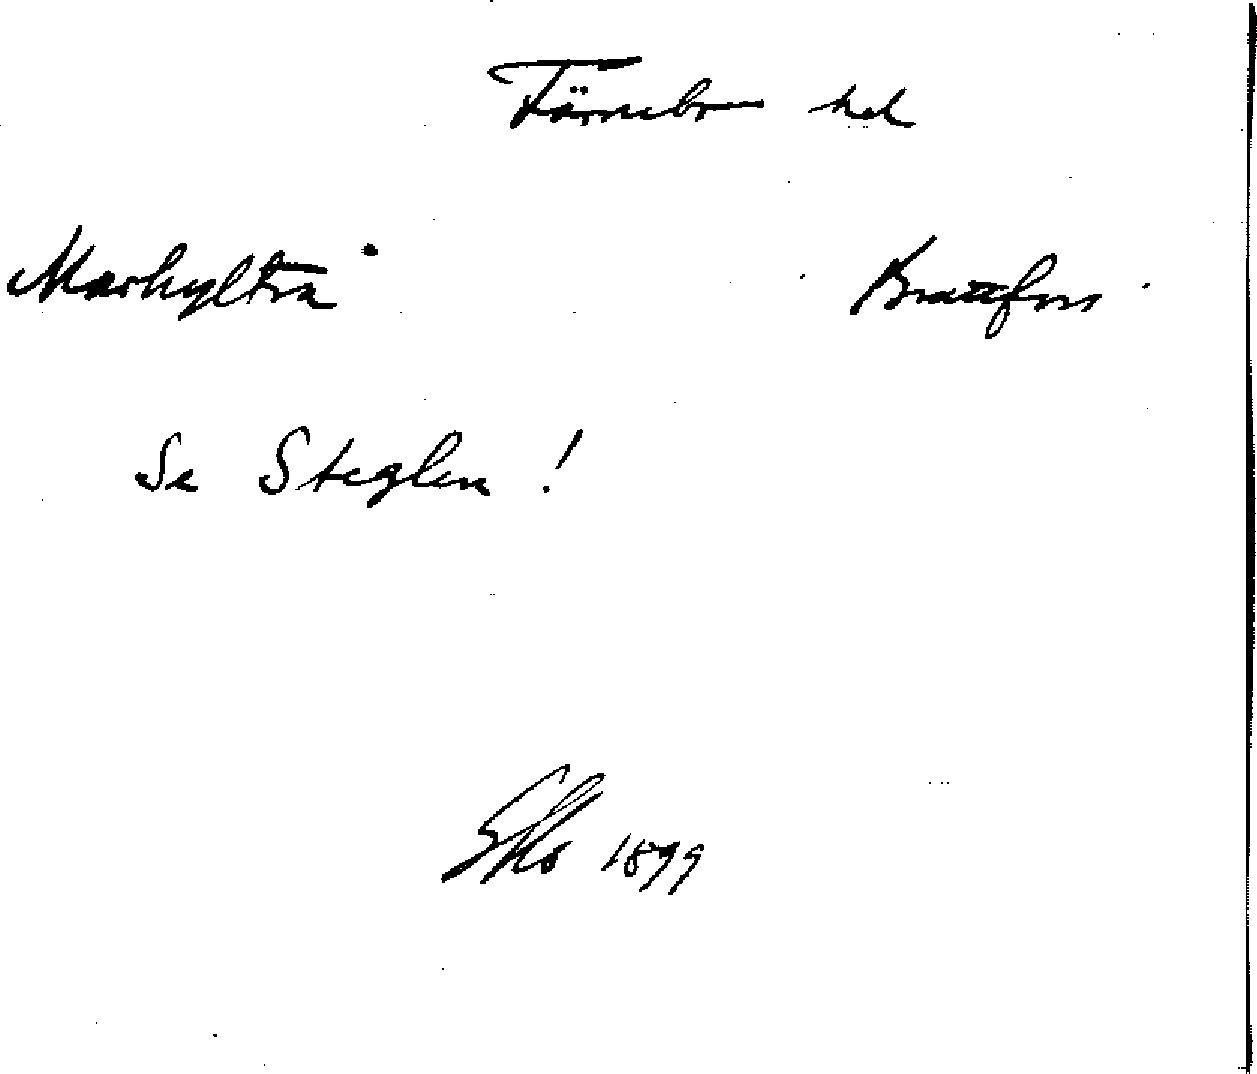 Färnebo hd
Markylträ Brattfors
Se Steglen !
Eko 1899